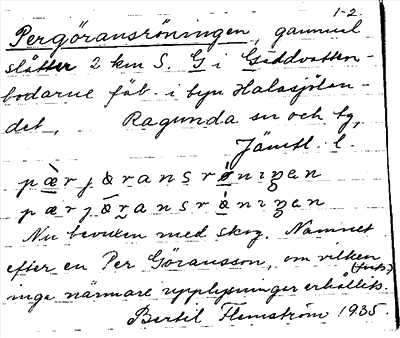 1-2.
Pergöransröningen, gammal
slåtter 2 km S. G i Giddvattenbodarne fäb. i byn Halasjölandet, Ragunda sn och tg,
Jämtl. l.
pærjøransrøniŋan
pærjøransrøniŋan
Nu bevuxen med skog. Namnet
efter en Per Göransson, om vilken
inga närmare upplysningar erhållits.
Bertil Flemström 1935.